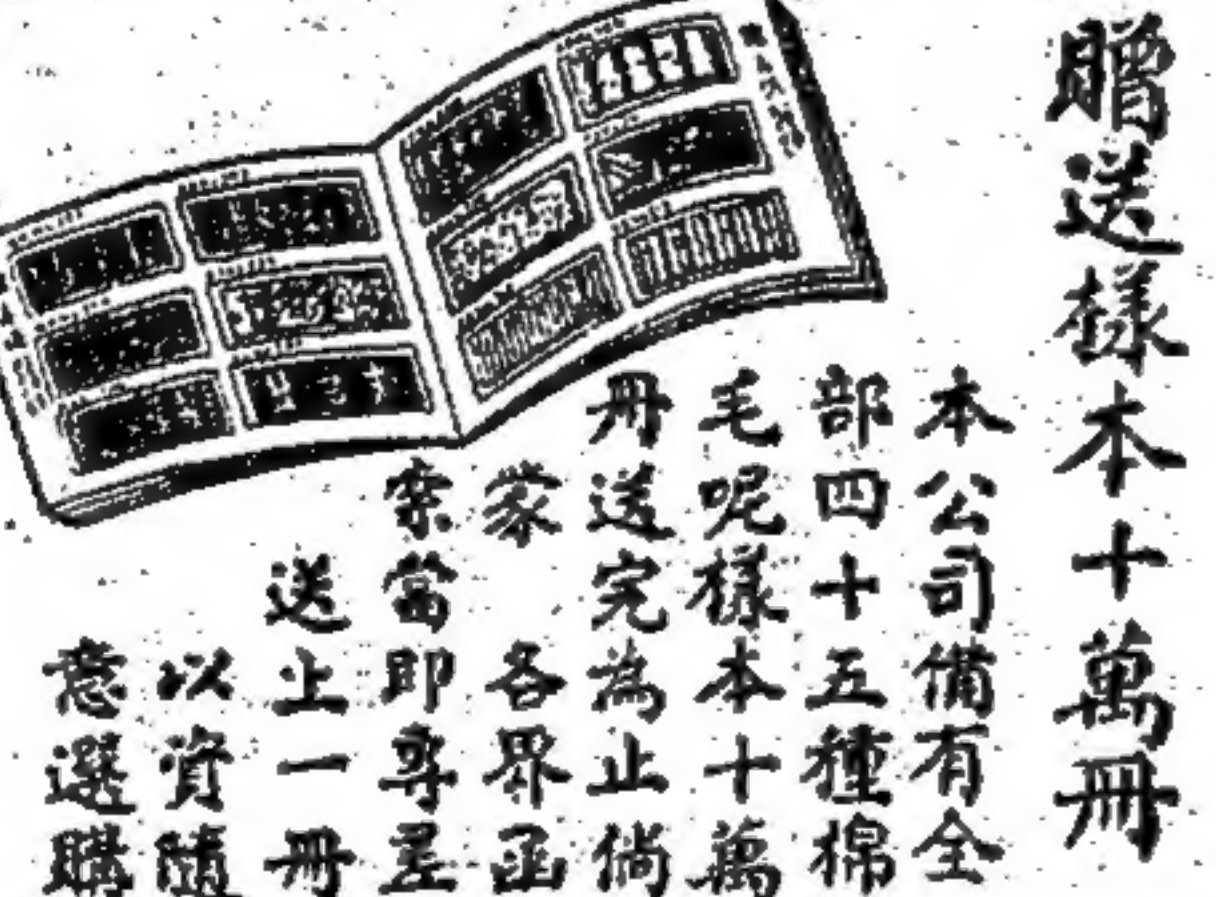 贈送樣本十萬冊
本公司備有全
部四十五種棉
毛呢樣本十萬
冊送完為止倘
蒙 各界函
索當即專差
送上一冊
以資隨
意選購